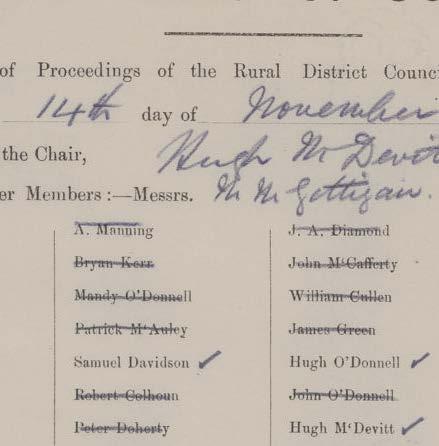 of Proceedings of the Rural District Counc
14th day of November
the Chair, Hugh McDevit
er Members :—Messrs. M McGettigan.
A. Manning
Bryan Kerr
Mandy O'Donnell
Patrick M'Auley
Samuel Davidson ✓
Robert Colhoun
Peter Doherty
J. A. Diamond
John M'Cafferty
William Cullen
James Green
Hugh O'Donnell ✓
John O'Donnell
Hugh M'Devitt ✓